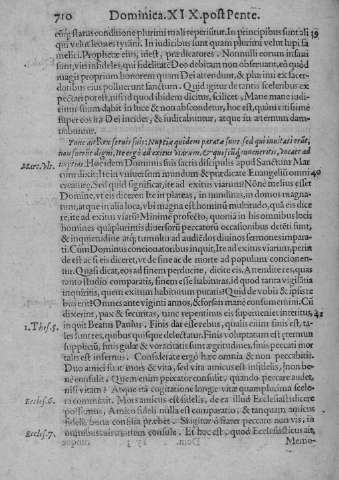 710 Dominica. XIX. post Pente.
cuiusq; status conditione plurimi mali reperiütur. In principibus sunt ali 39
qui velut leones tyrāni. In iudicibus sunt quam plurimi velut lupi fa
melici. Prophetæ eius, inest, prædicatores. Nonnulli eorum insani
sunt, viri infideles, qui fidelitatē Deo debitam non obseruant, eò quod
magis proprium honorem quam Dei attendunt, & plurimi ex sacer-
dotibus eius polluerunt sanctum. Quid igitur de tantis sceleribus ex
pectari potest, nisi id quod ibidem dicitur, scilicet, Mane mane iudi-
cium suum dabit in luce & non abscondetur, hoc est, quòd citissimè
super eos ira Dei incidet, & iudicabuntur, atque in æternum dam-
nabuntur.
Tunc ait Rex seruis suis: Nuptiæ quidem paratæ sunt sed qui inuitati erāt,
non fuerunt digni, Ite ergò ad exitus viarum, & quoscūq; inueneritis, vocate ad
nuptias. Hoc idem Dominus suis sacris discipulis apud Sanctum Mar
Marc. vlt.
cum dixit: Ite in vniuersum mundum & prædicate Euangelium omni 40
creaturæ. Sed quid significat, ite ad exitus viarum? Nōne melius esset
Domine, vt eis diceres: Ite in plateas, in nundinas, in domos magna-
tum, atque in alia loca, vbi magna est hominū multitudo, quā eis dice
re, ite ad exitus viarū? Minimè profectò, quoniā in his omnibus locis
homines quàm plurimis diuersorū peccatorū occasionibus detēti sunt,
& inquietudine atq; tumultu ad audiēdos diuinos sermones imparati.
Cùm Dominus concionatoribus inquit, Ite ad exitus viarum, perin
de est ac si eis diceret, vt de fine ac de morte ad populum concionen-
tur. Quasi dicat, eos ad finem perducite, dicite eis. Attendite res, quas
tanto studio comparatis, finem esse habituras, id quod tanta vigilātia
inquiritis, quem exitum habiturum putatis? Quid de vobis & ipsis re
bus erit? Omnes ante viginti annos, & forsan manè consumemini. Cū
dixerint, pax & securitas, tunc repentinus eis superueniet interitus, 41
1. Thes. 5. inquit Beatus Paulus. Finis dat esse rebus, qualis enim finis est, ta-
les sunt res, quibus quisque delectatur. Finis voluptatum est æternum
supplicium, finis gulæ & voracitatis sunt ægritudines, finis peccati mor
talis est infernus. Considerate ergò hæc omnia & non peccabitis.
Duo amici sunt mors & vita, sed vita amicus est infidelis, non be-
nè consulit. Quem enim peccator consulit, quando peccare audet,
nisi vitam? Atque ita cogitatione longæ vitæ quamplurima scele-
ra committit. Mors amicus est fidelis, de ea illud Ecclesiastici dicere
Eccles. 6.
possumus, Amico fideli nulla est comparatio, & tanquam amicus
fidelis bona consilia præbet. Si igitur ò frater peccare non vis, in
omnibus his mortem consule. Et hoc est, quod Ecclesiasticus ait,
Eccles. 7.
Memo-